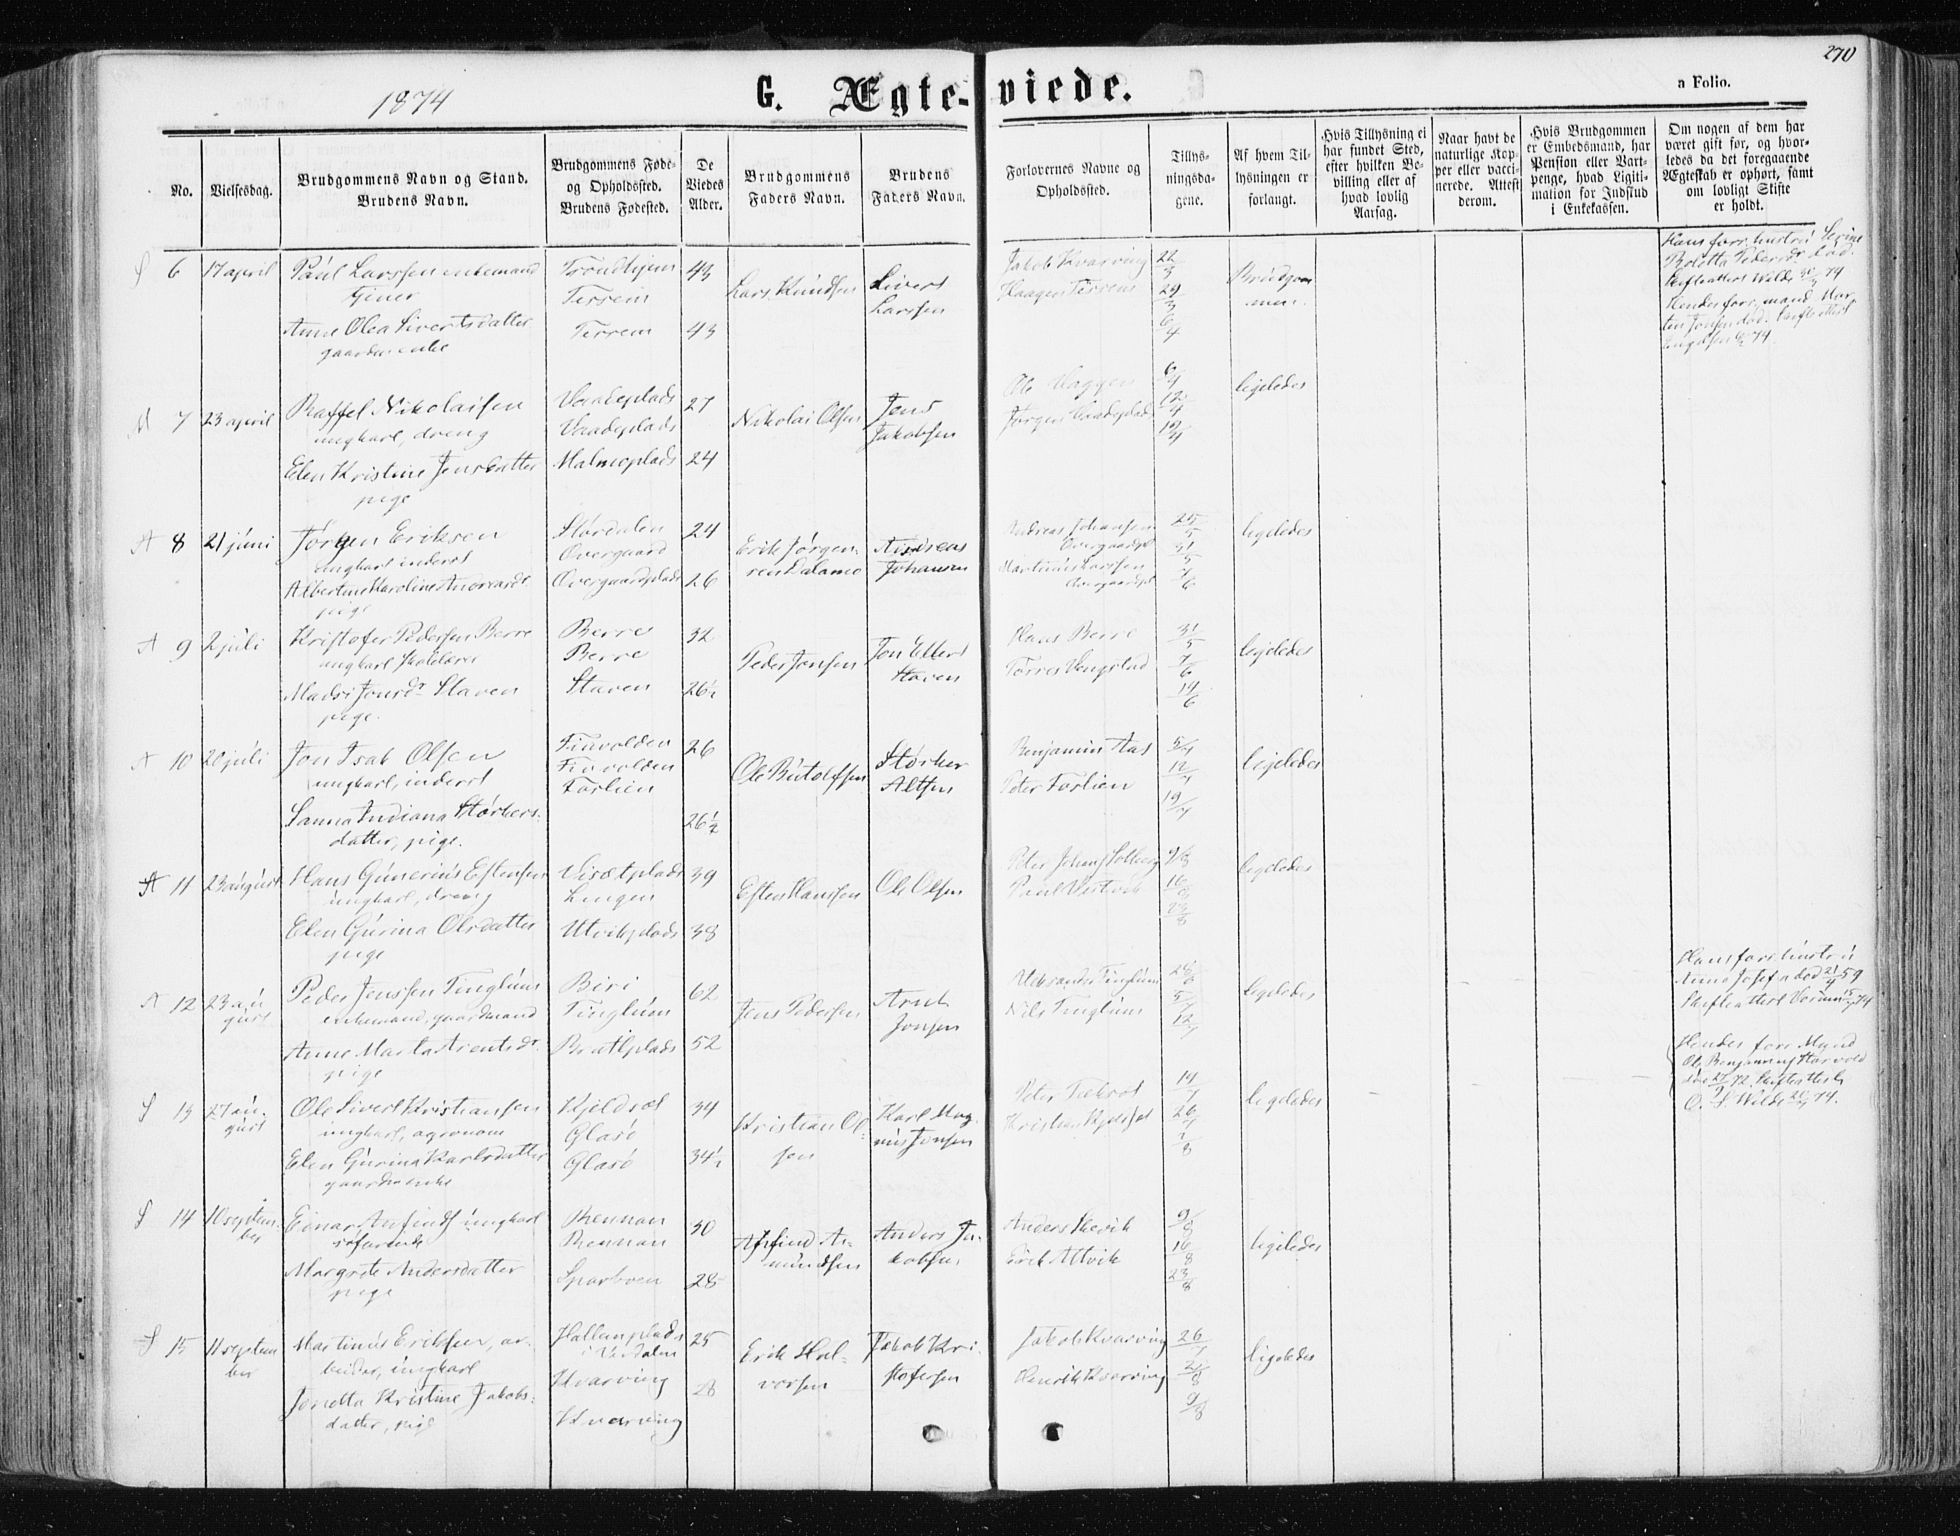 270
1874
G. Ægte-viede.
n Folio.
No.
Vielsesdag.
Brudgommens Navn og Stand.
Brudens Navn.
Brudgommens Føde-
og Opholdssted.
Brudens Fødested.
De
Viedes
Alder.
Brudgommens
Faders Navn.
Brudens
Faders Navn.
Forlovernes Navne og
Opholdssted.
Tillys-
ningsda-
gene.
Af hvem Til-
lysningen er
forlangt.
Hvis Tillysning ei
har fundet Sted,
efter hvilken Be-
villing eller af
hvad lovlig
Aarsag.
Naar havt de
naturlige Kop-
per eller vacci-
nerede. Attest
derom.
Hvis Brudgommen
er Embedsmand, har
Pension eller Vart-
penge, hvad Ligiti-
mation for Indskud
i Enkekassen.
Om nogen af dem har
været gift før, og hvor-
ledes da det foregaaende
Ægteskab er ophørt, samt
om lovligt Skifte
er holdt.
S 6 17 april
Paul Larssen enkemand
Anne Olea Sivertsdatter
gaardm enke
Trondhjem
Terrem
Terrem
43
43
Lars Knudsen
Sivert
Larssen
Jakob Kvarving
Haagen Terrem
22/3
29/3
6/4
Brudgom
men.
Hans forr. hustru
Hendes forr. mand Mar-
M 7 23 april
Raffel Nikolaisen
ungkarl, dreng
Elen Kristine Jensdatter
pige
Vaadeplads
Vaadeplads
Malmoplads
27
24
Nikolai Olsen
Jens
Jakobsen
Ole Vaggen
Jørgen Vaadeplads
6/4
12/4
19/4
ligeledes
A 8 21 juni
Jørgen Eriksen
ungkarl inderst
Albertine Karoline Andreasdr
pige
Størdalen
Overgaard
Overgaardplads
24
26
Erik Jørgen-
Andreas
Johansen
Andreas Johansen
Overgaardpl
Martinus Larssen
Overgaardpl
25/5
31/5
7/6
ligeledes
A 9 2 juli
Kristofer Pedersen Berre
ungkarl skolelærer
Madsi Jonsdr Staven
pige.
Berre
Berre
Staven
32
26½
Peder Jonsen
Jon Ellers
Staven
Hans Berre
Torres Vengstad
31/5
7/6
14/6
ligeledes
A 10 20 juli
Jon Isak Olsen
ungkarl, inderst
Sanna Indiana Størkers-
datter, pige.
Finvolden
Finvolden
Forlien
26
26½
Ole Butolfsen
Størker
Altsen
Benjamin Aas
Peter Forlien
5/7
12/7
19/7
ligeledes
A 11 23 august
Hans Gunerius Estensen
ungkarl, dreng
Elen Gurina Olsdatter
pige
Visetplads
Lungen
Utvikplads
39
38
Esten Hanssen
Ole Olsen
Peter Johans Solberg
Paul Vestvik
9/8
16/8
23/8
ligeledes
A 12 23 au
gust
Peder Jenssen Tinglum
enkemand, gaardmand
Anne Marta Arentsdr.
pige
Biri
Tinglum
Bratlplads
62
52
Jens Pedersen
Arnt
Jonsen
Aleksander Tinglum
Nils Tinglum
28/6
5/7
12/7
ligeledes
Hans forr hustru
Anna Josefa død 21/4 59
S 13 27 au-
gust
Ole Sivert Kristiansen
ungkarl, agronom
Elen Gurina Karlsdatter
gaardm enke
Kjeldset
Glasø
Glasø
34
34½
Kristian Ol-
sen
Karl Mag
nus Jonsen
Kristian Kjeldset
19/7
26/7
2/8
ligeledes
Hendes forr Mand
Ole Benjamins Storvold
S 14 10 septem-
ber
Einar Anfinds ungkarl
Margrete Andersdatter
pige
Rennan
Rennan
Sparboen
30
28
Anfind A-
mundsen
Anders Ja-
kobsen
Anders Hevik
Erik Altvik
9/8
16/8
23/8
ligeledes
S 15 11 septem
ber
Martinus Eriksen, ar-
beider, ungkarl
Jonetta Kristine Jakobs-
datter, pige
Hallemplads
i Værdalen
Kvarving
Kvarving
25
28
Erik Hal-
vorsen
Jakob Kri-
stofersen
Jakob Kvarving
Henrik Kvarving
26/7
2/8
9/8
ligeledes